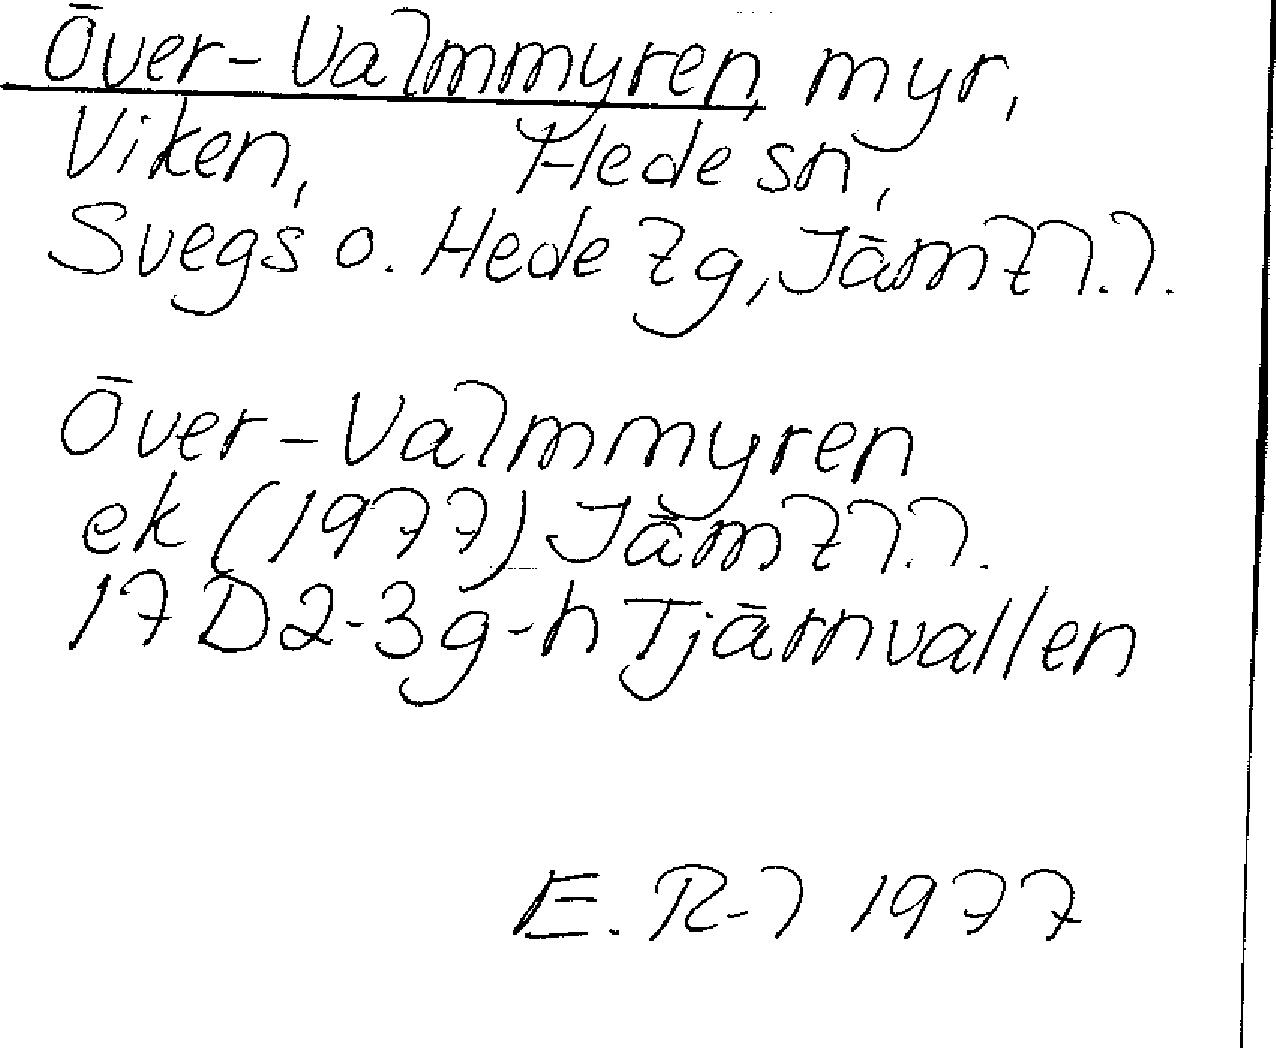 Över-Valmmyren, myr,
Viken, Hede sn,
Svegs o. Hede tg, Jämtl.l.
Över-Valmmyren
ek (1977) Jämtl.l.
17D2-3g-h Tjärnvallen
E. R-l 1977